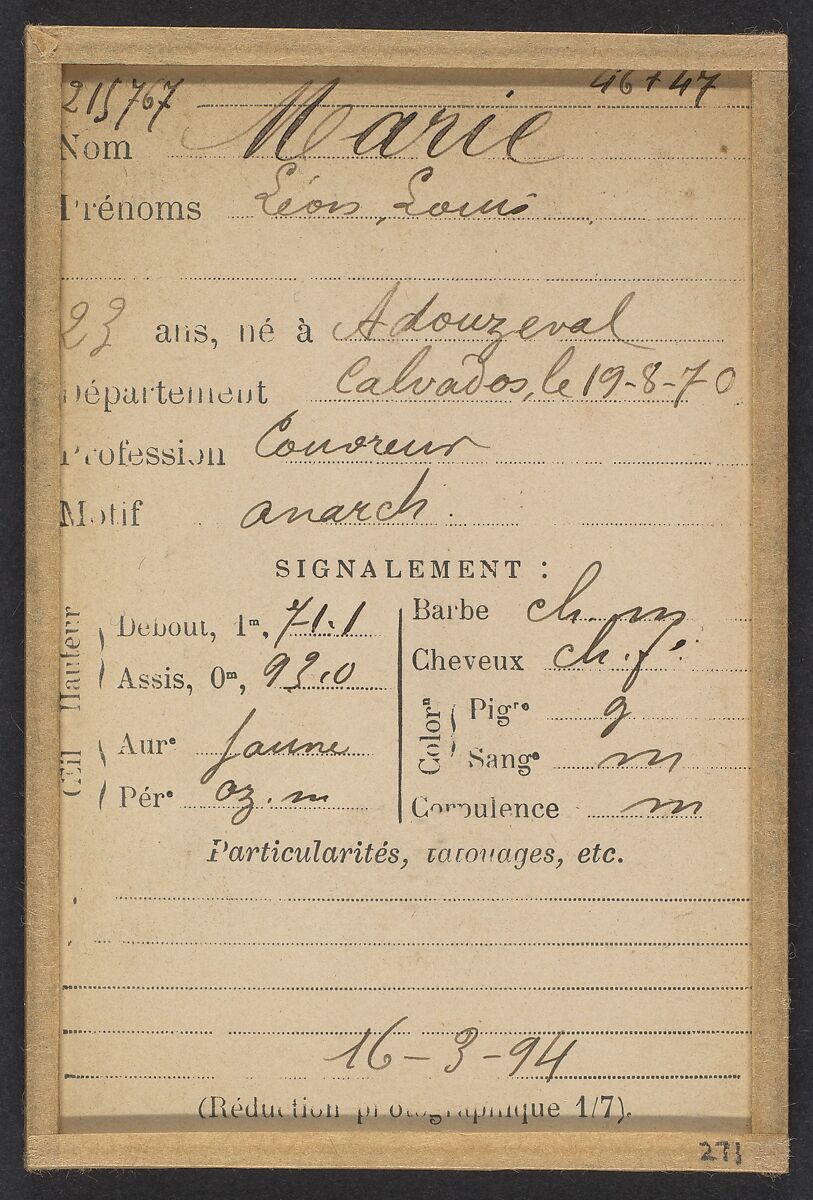 215767 46 + 47
Nom Marie
Prénoms Léon, Louis
23 ans, né à Adouzeval
Département Calvados, le 19-8-70
Profession Couvreur
Motif anarch.
SIGNALEMENT :
Hauteur
Debout, 1m, 71.1
Assis, 0m, 93.0
Œil
Aure jaune
Pére oz. m
Barbe ch. m
Cheveux ch. f.
Colorn
Pigre g
Sange m
Corpulence m
Particularités, tatouages, etc.
16-3-94
(Réduction photographique 1/7).